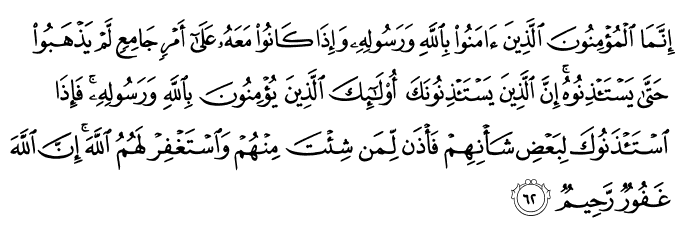 إِنَّمَا ٱلْمُؤْمِنُونَ ٱلَّذِينَ ءَامَنُوا۟ بِٱللَّهِ وَرَسُولِهِۦ وَإِذَا كَانُوا۟ مَعَهُۥ عَلَىٰٓ أَمْرٍ جَامِعٍ لَّمْ يَذْهَبُوا۟
حَتَّىٰ يَسْتَـْٔذِنُوهُ ۚ إِنَّ ٱلَّذِينَ يَسْتَـْٔذِنُونَكَ أُو۟لَـٰٓئِكَ ٱلَّذِينَ يُؤْمِنُونَ بِٱللَّهِ وَرَسُولِهِۦ ۚ فَإِذَا
ٱسْتَـْٔذَنُوكَ لِبَعْضِ شَأْنِهِمْ فَأْذَن لِّمَن شِئْتَ مِنْهُمْ وَٱسْتَغْفِرْ لَهُمُ ٱللَّهَ ۚ إِنَّ ٱللَّهَ
غَفُورٌ رَّحِيمٌ ٦٢